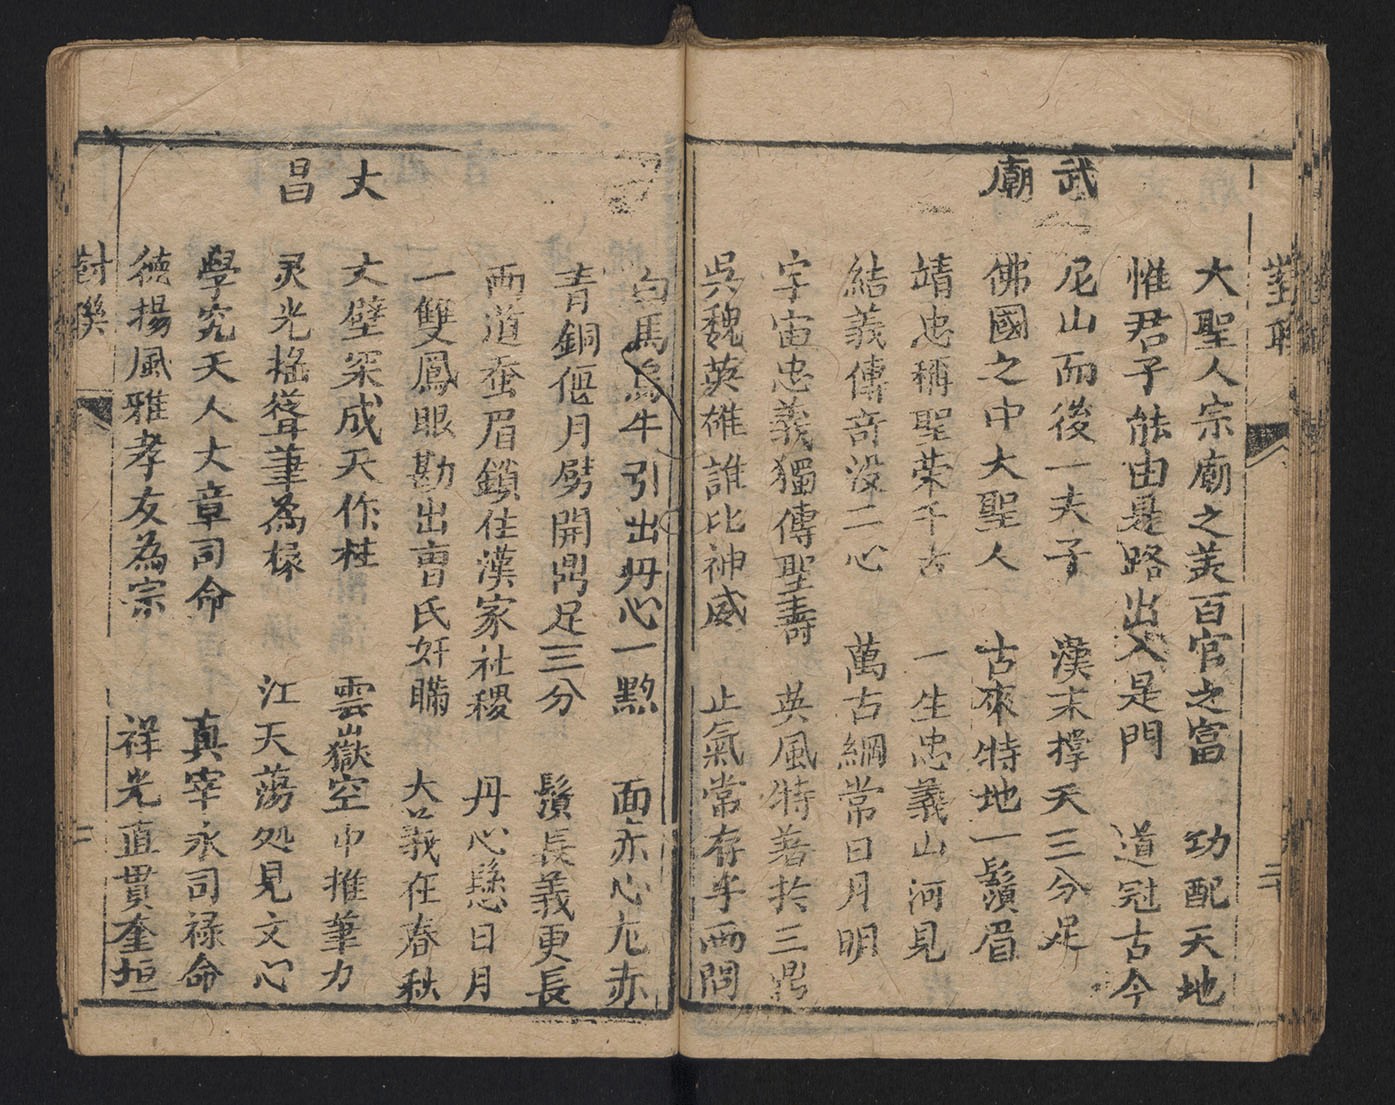 對聯
大聖人宗廟之美百官之富 功配天地
惟君子能由是路出入是門 道冠古今
武廟
尼山而後一夫子 漢末撑天三分足
佛國之中大聖人 古來特地一鬚眉
靖忠稱聖荣千古 一生忠義山河見
結義傳奇没二心 萬古綱常日月明
字宙忠義獨傳聖壽 英風特著扵三
吳魏英雄誰比神威 止氣常存乎両間
白馬烏牛引出丹心一㸃 面赤心尤赤
青銅偃月劈開鼎足三分 鬚長義更長
両道蚕眉鎖住漢家社稷 丹心懸日月
一雙鳳眼勘出曹氏奸瞞 大義在春秋
文昌
文壁深成天作柱 雲嶽空中推筆力
灵光摇聳筆為椽 江天蕩処見文心
學究天人大章司命 真宰永司禄命
德揚風雅孝友為宗 祥光直貫奎垣
對聯